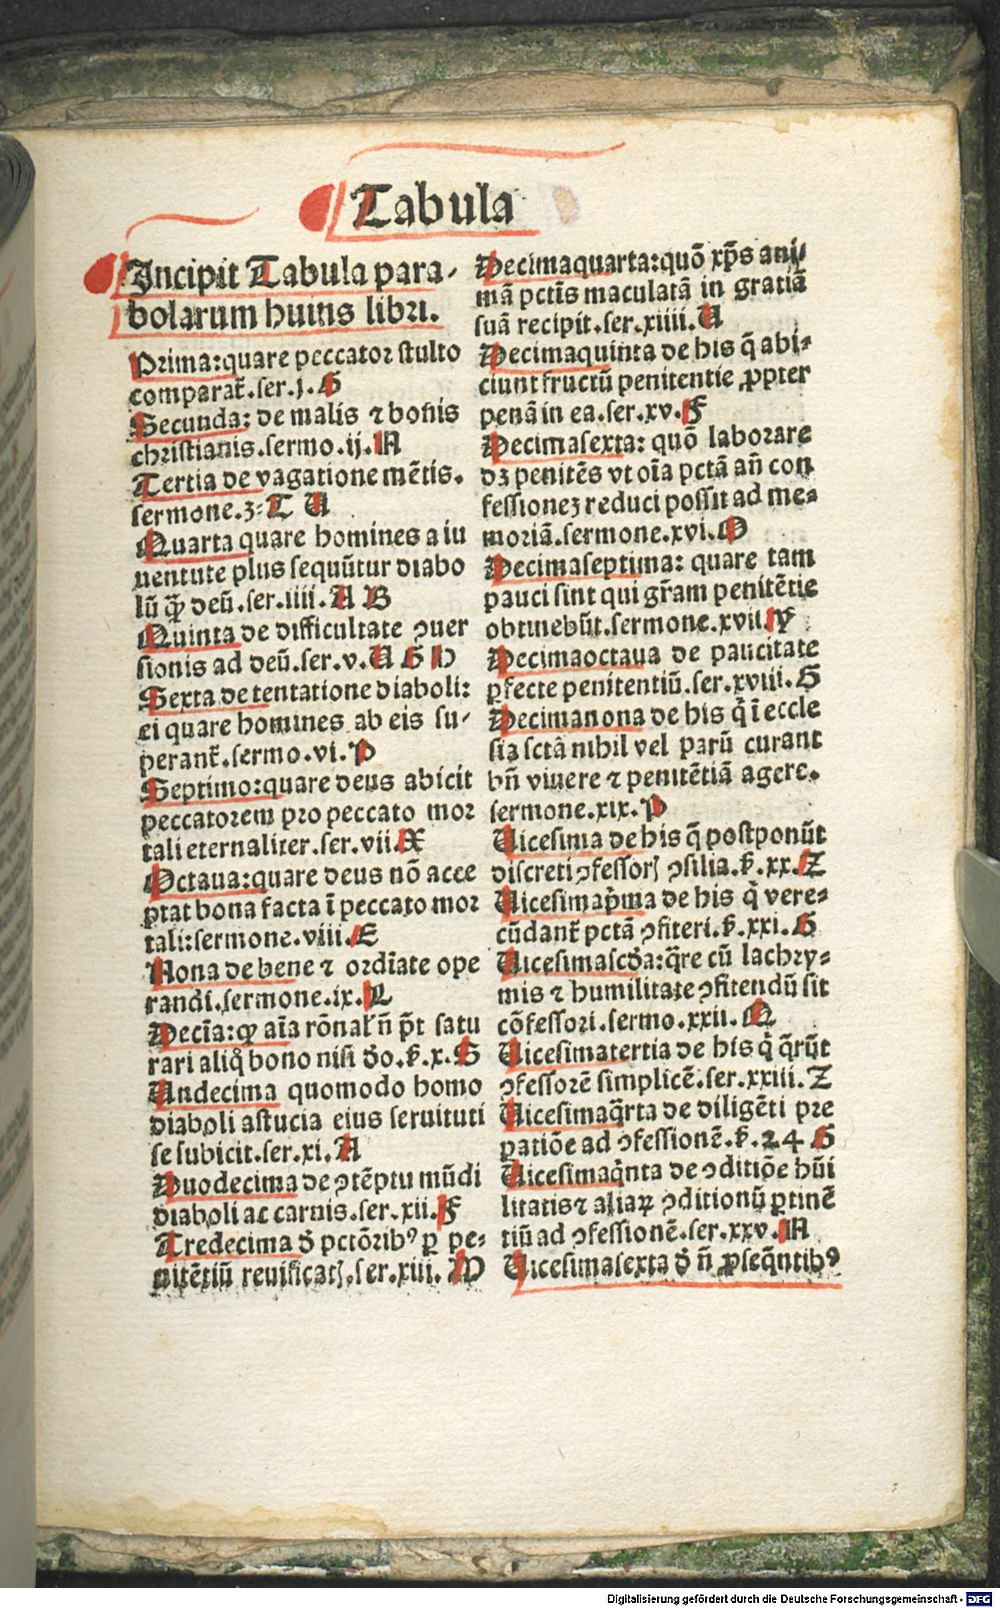 Tabula
Incipit Tabula para-
bolarum huius libri.
Prima: quare peccator stulto
comparat̃. ser. j. G
Secunda: de malis ⁊ bonis
christianis. sermo. ij. N
Tertia de vagatione mẽtis.
sermone. 3. T U
Quarta quare homines a iu
uentute plus sequũtur diabo
lũ q̃ꝫ deũ. ser. iiii. A B
Quinta de difficultate ꝯuer
sionis ad deũ. ser. v. A G H
Sexta de tentatione diaboli:
ei quare homines ab eis su-
perant̃. sermo. vi. P
Septimo: quare deus abicit
peccatorem pro peccato mor
tali eternaliter. ser. vii. X
Octaua: quare deus nõ acce
ptat bona facta ĩ peccato mor
tali: sermone. viii. E
Nona de bene ⁊ ordĩate ope
randi. sermone. ix. L
Decĩa: qꝫ aĩa rõnal̃ ñ p̃t satu
rari aliq̊ bono nisi d̓o. ẞ. x. G
Undecima quomodo homo
diaboli astucia eius seruituti
se subicit. ser. xi. A
Duodecima de ꝯtẽptu mũdi
diaboli ac carnis. ser. xii. F
Tredecima d̓ pctõribꝰ ꝑ pe-
nitẽtiũ reuificatꝭ. ser. xiii. M
Decimaquarta: quõ xp̃s ani-
mã pctĩs maculatã in gratiã
suã recipit. ser. xiiii. A
Decimaquinta de his q̃ abi-
ciunt fructũ penitentie ꝓpter
penã in ea. ser. xv. F
Decimasexta: quõ laborare
dꝫ penitẽs vt oĩa pctã añ con
fessioneꝫ reduci possit ad me-
moriã. sermone. xvi. O
Decimaseptima: quare tam
pauci sint qui gr̃am penitẽtie
obtinebũt. sermone. xvii. Y
Decimaoctaua de paucitate
ꝑfecte penitentiũ. ser. xviii. G
Decimanona de his q̊ ĩ eccle
sia sctã nihil vel parũ curant
bñ viuere ⁊ penitẽtiã agere.
sermone. xix. P
Uicesima de his q̃ postponũt
discreti ꝯfessorꝭ ꝯsilia. ẞ. xx. Z
Uicesimap̃ma de his q̊ vere-
cũdant̃ pctã ꝯfiteri. ẞ. xxi. G
Uicesimascd̓a: q̃re cũ lachry-
mis ⁊ humilitate ꝯfitendũ sit
cõfessori. sermo. xxii. Q
Uicesimatertia de his q̊ q̃rũt
ꝯfessorẽ simplicẽ. ser. xxiii. Z
Uicesimaq̃rta de diligẽti pre
patiõe ad ꝯfessionẽ. ẞ. 24 G
Uicesimaq̊nta de ꝯditiõe hũi
litatis ⁊ aliaꝝ ꝯditionũ ꝑtinẽ
tiũ ad ꝯfessionẽ. ser. xxv. N
Uicesimasexta d̓ ñ ꝓseq̃ntibꝰ
Digitalisierung gefördert durch die Deutsche Forschungsgemeinschaft - DFG